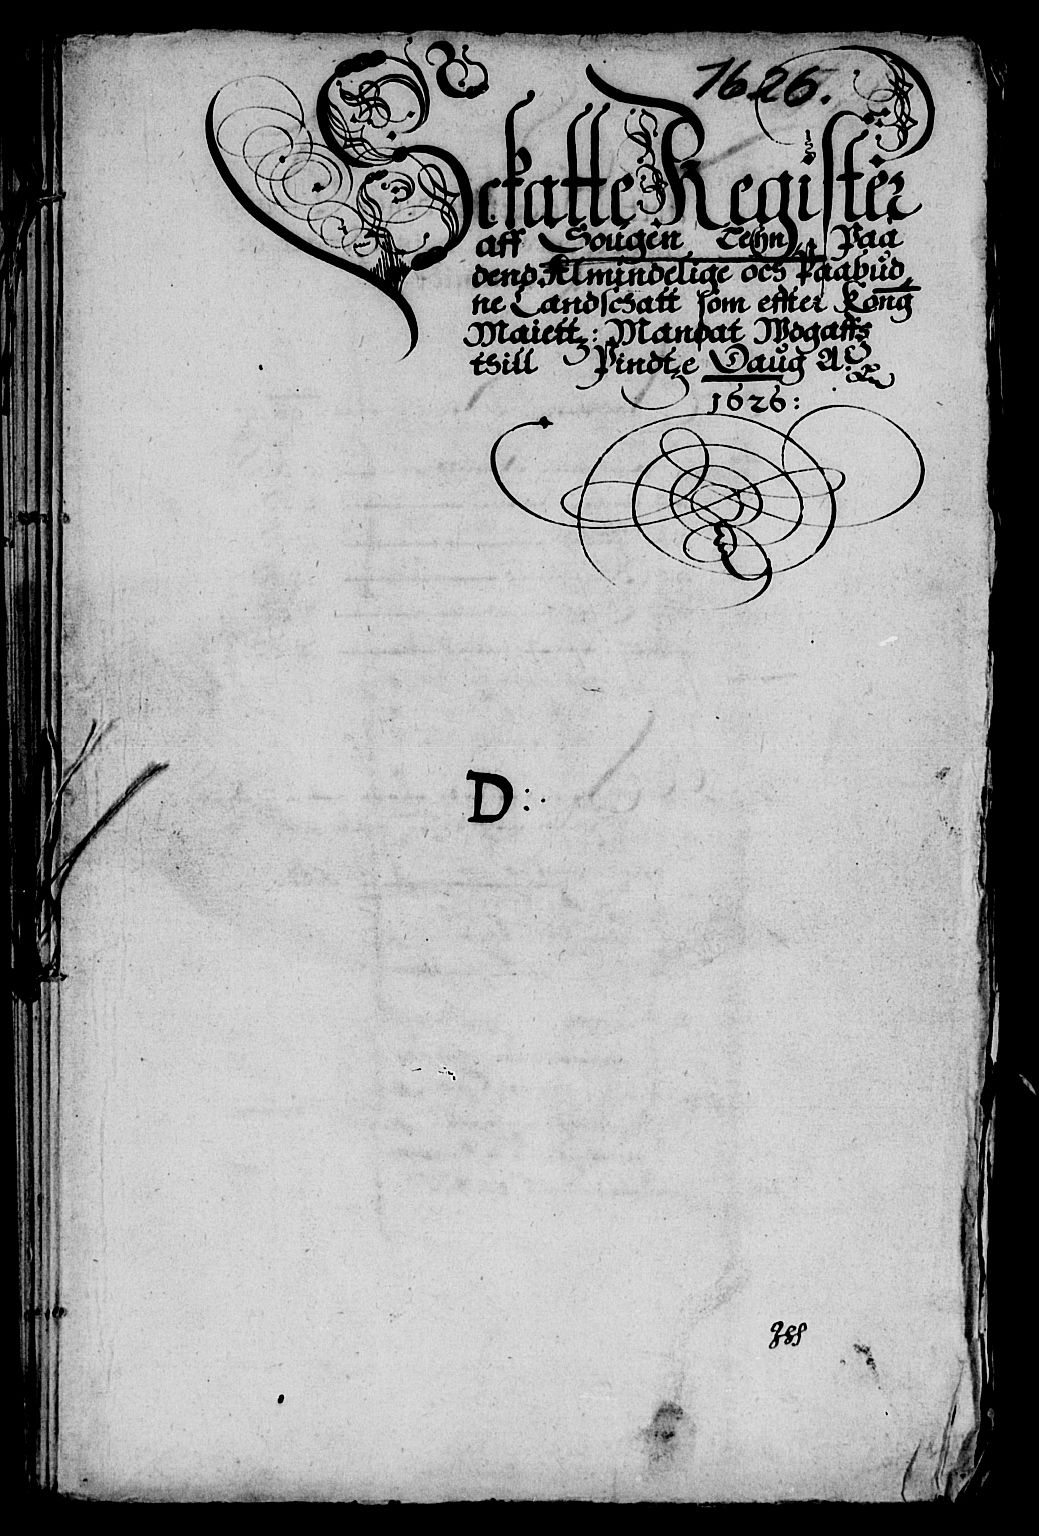 1626.
Sckatte Register
aff Sougen Lehn, Paa
dend Almindelige och Paabud,
ne Landschatt som effter Kong
Maiettz: Mandat Wdgaffs
thill Pindtze Daug A:
1626:
D: